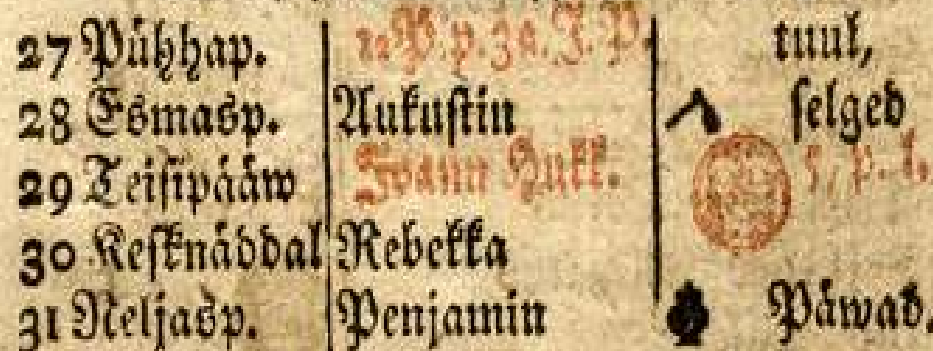 27 Pühhap. 12 P. p. 3 a. J. P. tuul,
28 Esmasp. Aukustin selged
29 Teisipääw Joann Hukk. 5, p. l.
30 Kesknäddal Rebekka
31 Neljasp. Penjamin Päwad.